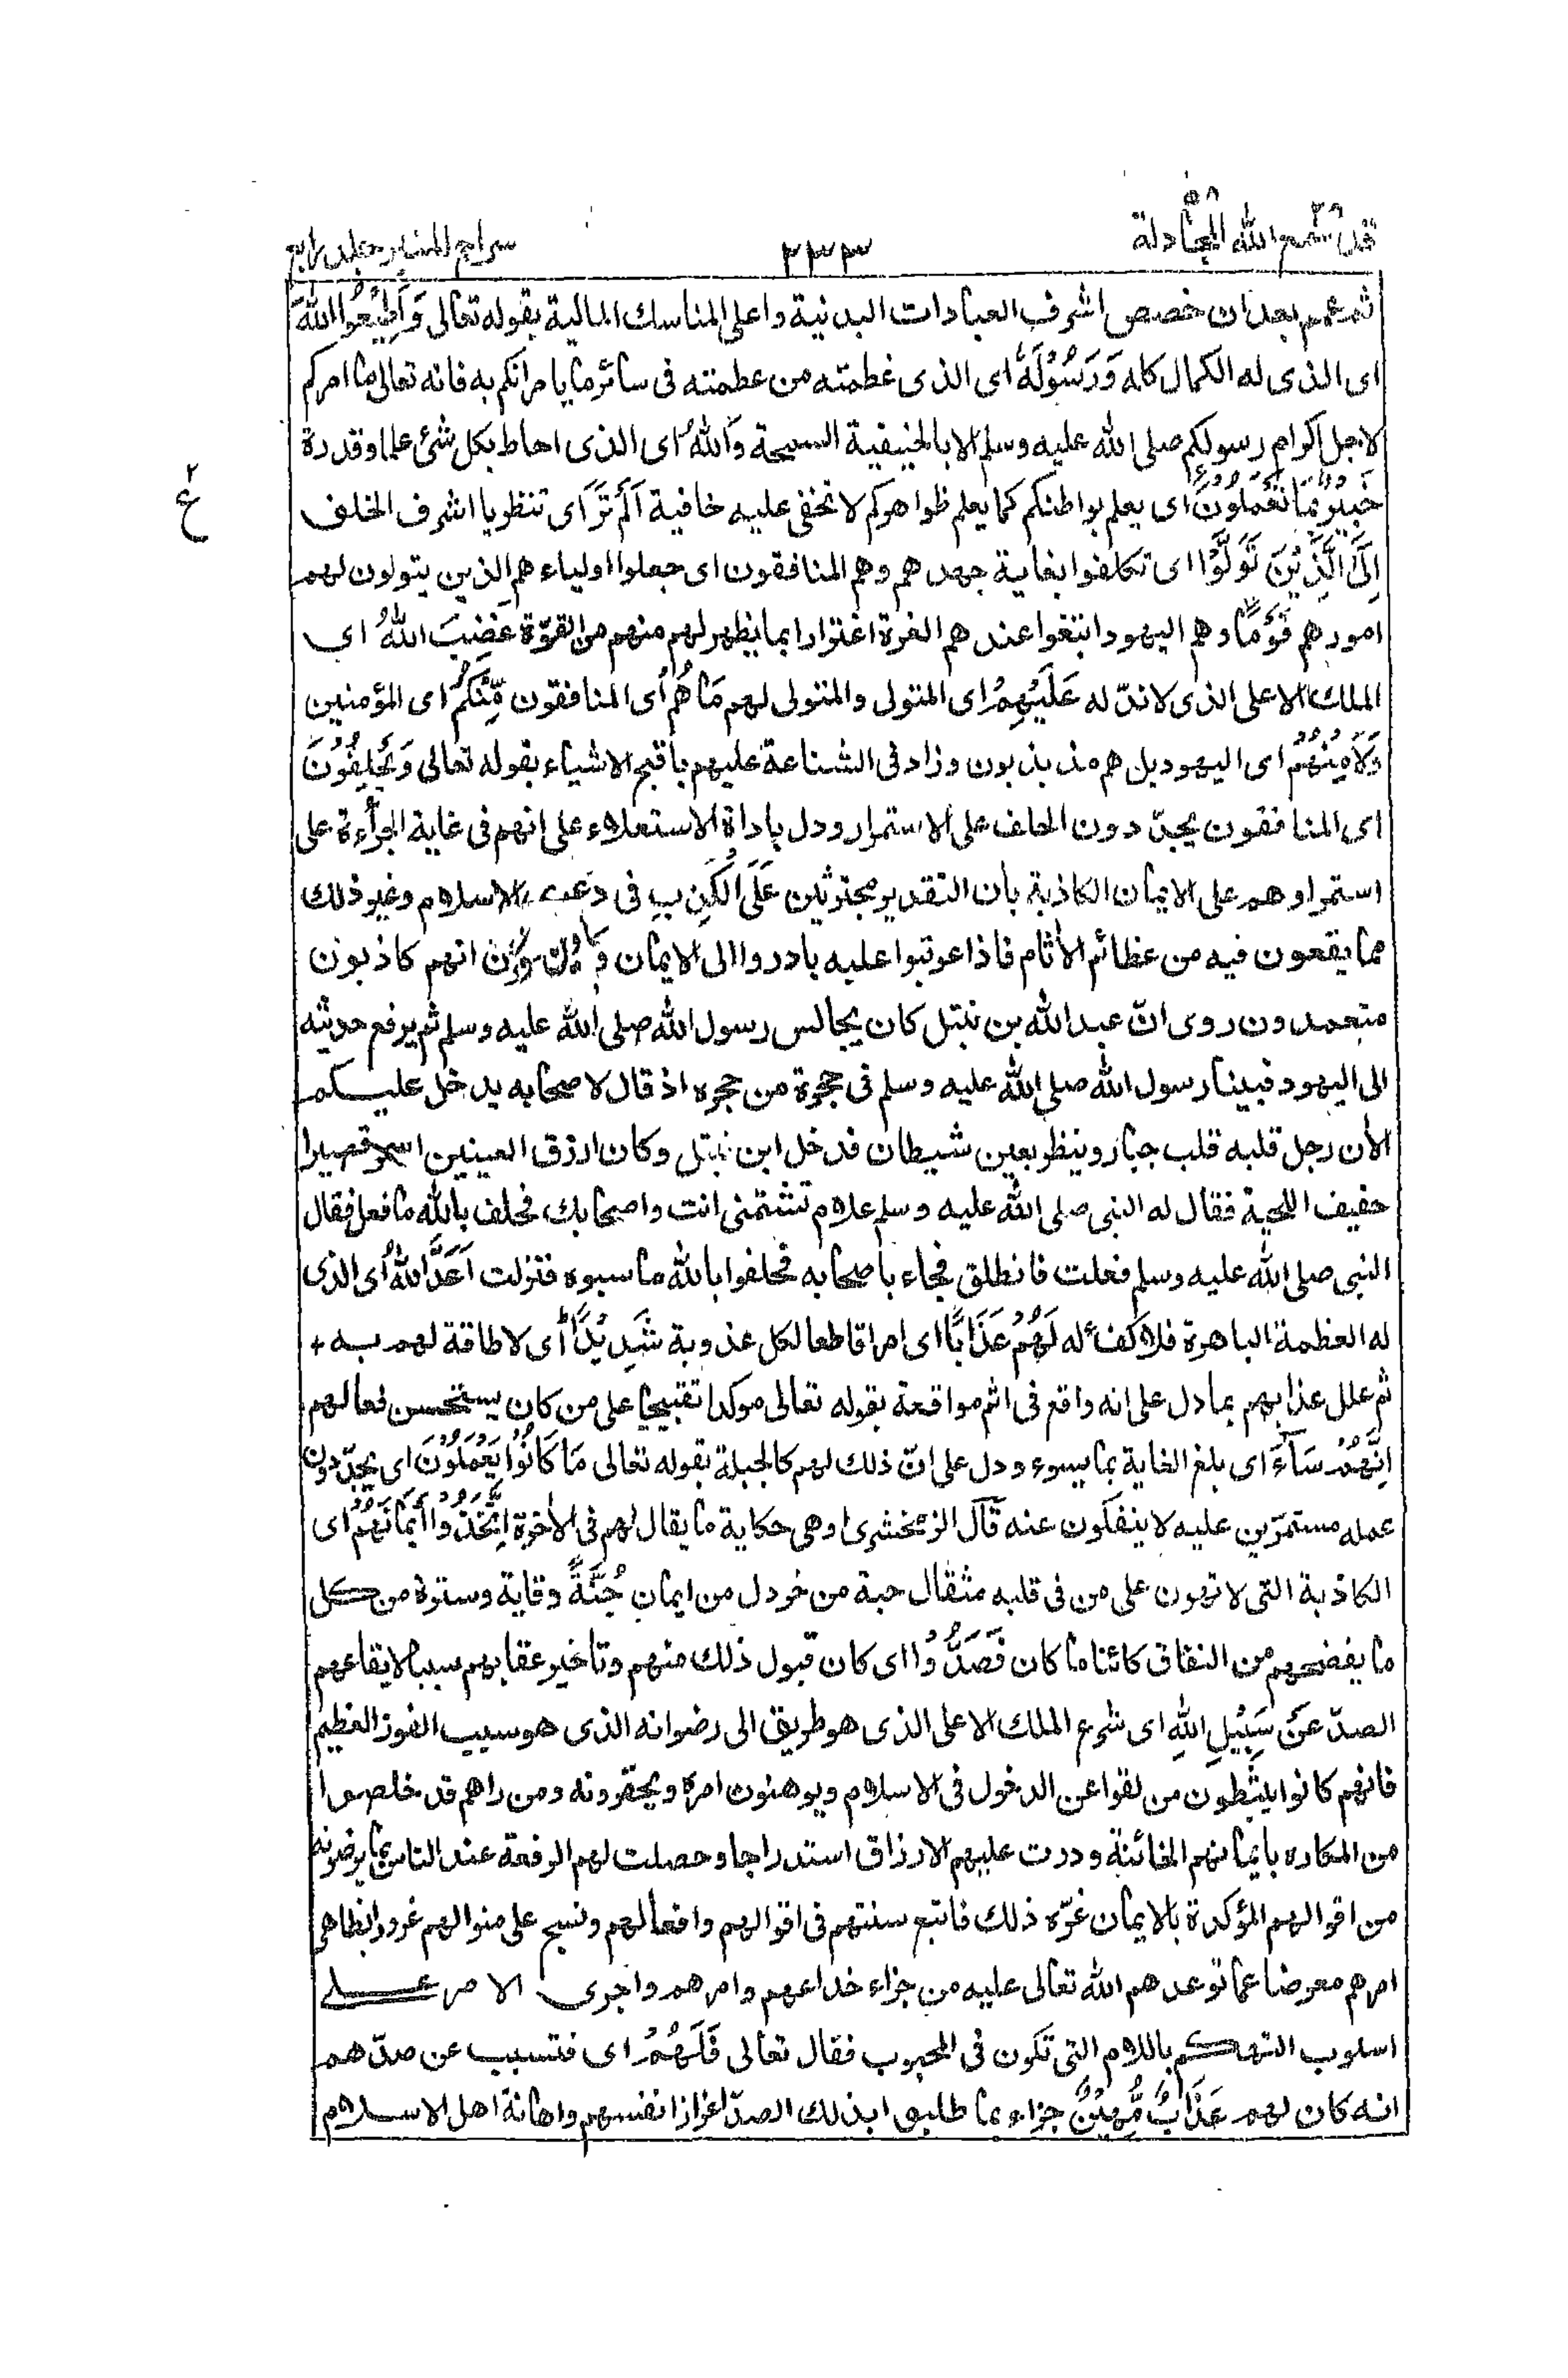 قد سمع الله ٢٨ المجادلة ٥٨
٢٣٣
سراج المنير جلد رابع
ثم عمم بعد ان خصص اشرف العبادات البدنية واعلى المناسك المالية بقوله تعالى وَاَطِيْعُوا اللّٰهَ
اى الذى له الكمال كله وَرَسُوْلَهٗ اى الذى عظمته من عظمته فى سائر ما يامرانكم به فانه تعالى ما امركم
لاجل اكرام رسولكم صلى الله عليه وسلم الا بالحنيفية السمحة وَاللّٰهُ اى الذى احاط بكل شئ علما وقدرة
خَبِيْرٌۢ بِمَا تَعْمَلُوْنَ اى يعلم بواطنكم كما يعلم ظواهركم لا تخفى عليه خافية اَلَمْ تَرَ اى تنظر يا اشرف الخلف
ع ٢
اِلَى الَّذِيْنَ تَوَلَّوْا اى تكلفوا بغاية جهدهم وهم المنافقون اى جعلوا اولياءهم الذين يتولون لهم
امورهم قَوْمًا وهم اليهود ابتغوا عندهم الغرة اغترارا بما يظهر لهم منهم من القوّة غَضِبَ اللّٰهُ اى
الملك الاعلى الذى لا ندّ له عَلَيْهِمْ اى المتولى والمتولى لهم مَا هُمْ اى المنافقون مِّنْكُمْ اى المؤمنين
وَلَا مِنْهُمْ اى اليهود بل هم مذبذبون وزاد فى الشناعة عليهم باقبح الاشياء بقوله تعالى وَيَحْلِفُوْنَ
اى المنافقون يجدّدون الحلف على الاستمرار ودل باداة الاستعلاء على انهم فى غاية الجرأءة على
استمرارهم على الايمان الكاذبة بان التقدير مجترئين عَلَى الْكَذِبِ فى دعوى الاسلام وغير ذلك
مما يقعون فيه من عظائم الأثام فاذا عوتبوا عليه بادروا الى الايمان وَهُمْ يَعْلَمُوْنَ انهم كاذبون
متعمدون روى انّ عبد الله بن نبتل كان يجالس رسول الله صلى الله عليه وسلم ثم يرفع حديثه
الى اليهود فبينا رسول الله صلى الله عليه وسلم فى حجرة من حجره اذ قال لاصحابه يدخل عليكم
الأن رجل قلبه قلب جبار وينظر بعين شيطان فدخل ابن نبتل وكان ازرق العينين اسمر قصيرا
خفيف اللحية فقال له النبى صلى الله عليه وسلم علام تشتمنى انت واصحابك فحلف بالله ما فعل فقال
النبى صلى الله عليه وسلم فعلت فانطلق فجاء باصحابه فحلفوا بالله ما سبوه فنزلت اَعَدَّ اللّٰهُ اى الذى
له العظمة الباهرة فلا كفأ له لَهُمْ عَذَابًا اى امرا قاطعا لكل عذوبة شَدِيْدًا اى لا طاقة لهم به +
ثم علل عذابهم بما دل على انه واقع فى اتم مواقعة بقوله تعالى موكدا تقبيحا على من كان يستحسن فعالهم
اِنَّهُمْ سَآءَ اى بلغ الغاية بما يسوء ودل على انّ ذلك لهم كالجبلة بقوله تعالى مَا كَانُوْا يَعْمَلُوْنَ اى يجدّدون
عمله مستمرّين عليه لا ينفكون عنه قال الزمخشرى او هى حكاية ما يقال لهم فى الأخرة اِتَّخَذُوْا اَيْمَانَهُمْ اى
الكاذبة التى لا تهون على من فى قلبه مثقال حبة من خردل من ايمان جُنَّةً وقاية وسترة من كل
ما يفضحهم من النفاق كائنا ما كان فَصَدُّوْا اى كان قبول ذلك منهم وتاخير عقابهم سببا لايقاعهم
الصدّ عَنْ سَبِيْلِ اللّٰهِ اى شرع الملك الاعلى الذى هو طريق الى رضوانه الذى هو سبب الفوز العظيم
فانهم كانوا يثبطون من لقوا عن الدخول فى الاسلام ويوهنون امره ويحقرونه ومن راهم قد خلصوا
من المكاره بايمانهم الخائنة ودرت عليهم الارزاق استدراجا وحصلت لهم الرفعة عند الناس بما يرضونه
من اقوالهم المؤكدة بالايمان غرّه ذلك فاتبع سنتهم فى اقوالهم وافعالهم ونسج على منوالهم غرورا بظاهر
امرهم معرضا عما توعدهم الله تعالى عليه من جزاء خداعهم وامرهم واجرى الامر على
اسلوب التهكم باللام التى تكون فى المحبوب فقال تعالى فَلَهُمْ اى فتسبب عن صدّهم
انه كان لهم عَذَابٌ مُّهِيْنٌ جزاء بما طلبوا بذلك الصدّ اعزاز انفسهم واهانة اهل الاسلام